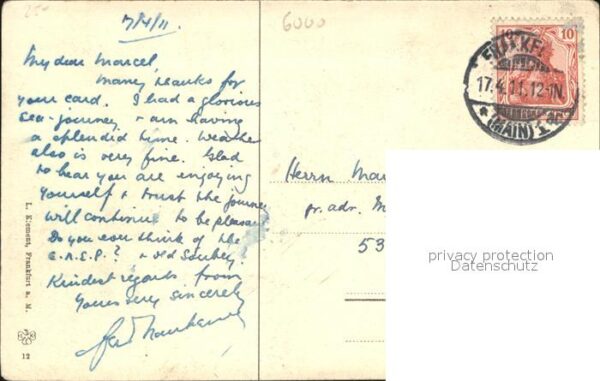 25-
6000
17/4/11
My dear Marcel
Many thanks for
your card. I had a glorious
sea-journey + am having
a splendid time. Weather
also is very fine. Glad
to hear you are enjoying
yourself + trust the journey
will continue to be pleasant
Do you ever think of the
+ old
Kindest regards from
Yours very sincerely
10 10
FRANKFURT
17.4.11.12-1N.
* (MAIN) 1
Herrn
pr. adr. M
53
privacy protection
Datenschutz
L. Klement, Frankfurt a. M.
12